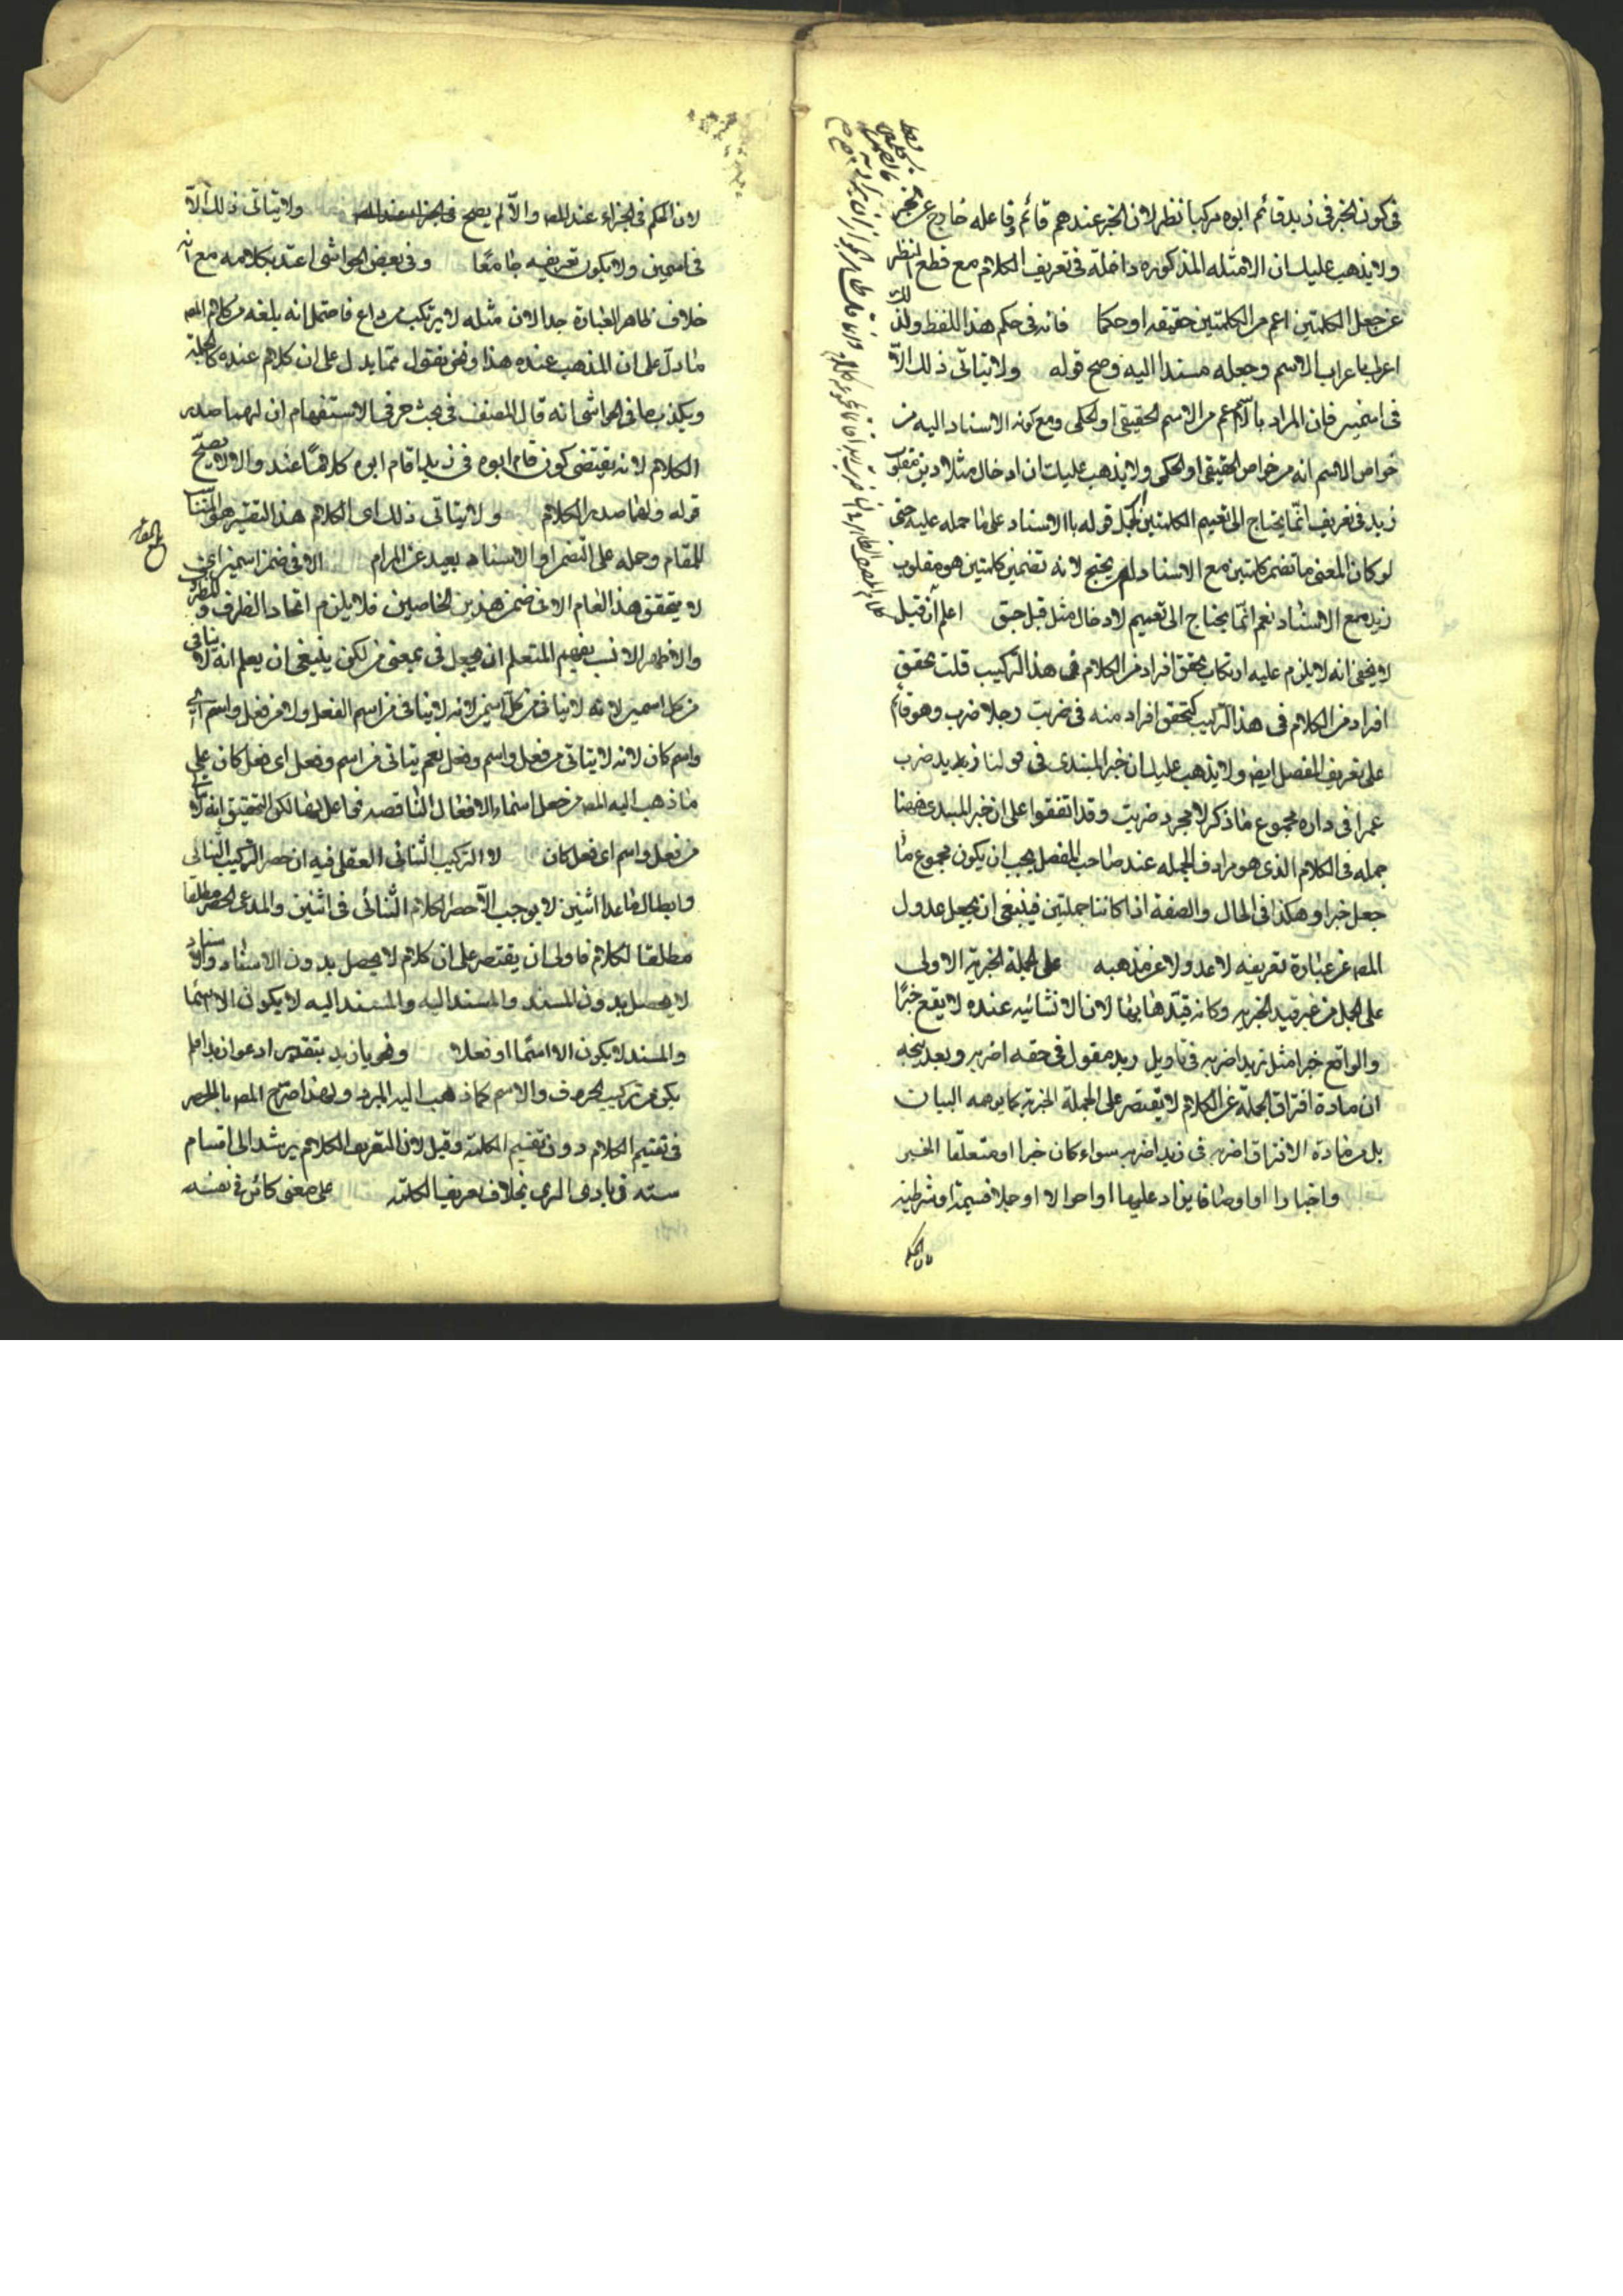 في كون الخبر في زيد قائم ابوه مركبا نظر لان الخبر عندهم قائم وفاعله خارج عن
ولا يذهب عليك ان الامثله المذكوره داخلة في تعريف الكلام مع قطع النظر
عن جعل الكلمتين اعم من الكلمتين حقيقه او حكما فانه في حكم هذا اللفظ ولذ
اعرب باعراب الاسم وجعله مسندا اليه وصح قوله ولا يتاتى ذلك الا
في اسمين فان المراد بالاسم اعم من الاسم الحقيقي او الحكمي ومع كونه الاسناد اليه من
خواص الاسم انه من خواص الحقيقي او الحكمي ولا يذهب عليك ان ادخال مثلا ديز مقلوب
زيد في تعريف انما يحتاج الى تعميم الكلمتين قوله بالاسناد على ما حمله عليه حتى
لو كان المعنى ما تضمن كلمتين مع الاسناد لم يحتج لانه تضمين كلمتين هو مقلوب
زيد مع الاسناد نعم انما يحتاج الى تعميم لادخال مثل قبل جسق اعلم ان قيل
لا يخفى انه لا يلزم عليه ارتكاب تحقق افراد من الكلام في هذا التركيب قلت تحقق
افراد من الكلام في هذا التركيب كتحقق افراد منه في ضربت رجلا ضرب وهو قائم
على تعريف المفصل ايضا ولا يذهب عليك ان خبر المبتدى في قولنا زيد ضرب
عمرا في داره مجموع ما ذكر لا مجرد ضربت وقد اتفقوا على ان خبر المبتدى ههنا
جمله في الكلام الذي هو مرادف الجمله عند صاحب المفصل يجب ان يكون مجموع ما
جعل خبرا وهكذا في الحال والصفة اذا كانتا جملتين فينبغي ان يجعل عدول
المصـ عن عبارة تعريفه لا عدولا عن مذهبه على الجملة الخبرية الاولى
على الجمل من غير قيد الخبريه وكانه قيدها بها لان الانشائيه عنده لا يقع خبرًا
والواقع خبرا مثل زيد اضربه في تاويل زيد مقول في حقه اضربه وبعد يتجه
ان مادة افتراق الجملة عن الكلام لا يقتصر على الجملة الخبرية كما يوهمه البيان
بل من مادة الافتراق اضربه في زيد اضربه سواء كان خبرا او متعلقا الخبر
واخبارا او اوصافا يزاد عليها او احوالا او جملا قسيمة او شرطية
لان الحكم
لان الحكم في الجزاء عند المصـ والا لم يصح في الجزاء عند المصـ ولا يتاتى ذلك الا
في اسمين ولا يكون تعريفه جامعًا وفي بعض الحواشي اعتد بكلامه مع انه
خلاف ظاهر العبارة جدا لان مثله لا يرتكب من داع فاحتمل انه بلغه من كلام المصـ
ما دل على ان المذهب عنده هذا ونحن نقول مما يدل على ان كلام عنده كالجملة
ويكذب ما في الحواشي انه قال المصنف في بحث حرفي الاستفهام ان لهما صدر
الكلام لانه يقتضي كون قام ابوه في زيد اقام ابوه كلامًا عنده والا لا يصح
قوله ولهما صدر الكلام ولا يتاتى ذلك اى الكلام هذا التفسير هو المناسب
للمقام وحمله على التضمن او الاسناد بعيد عن المرام الا في ضمن اسمين اى
لا يتحقق هذا العام الا في ضمن هذين الخاصين فلا يلزم اتحاد الظرف و المظروف
والاظهر الانسب بفهم المتعلم ان يجعل في بمعنى من لكن ينبغي ان يعلم انه لا يتاتى
من كل اسمين لانه لا يتاتى من كل اسمين لانه لا يتاتى من اسم الفعل ولا من فعل واسم اى
واسم كان لانه لا يتاتى من فعل واسم وفعل نعم يتاتى من اسم وفعل اى فعل كان على
ما ذهب اليه المصـ من جعل اسماء الافعال الناقصه فاعل لها لكن التحقيق انه لا
من فعل واسم اى فعل كان لان التركيب الثنائي العقلي فيه ان حصر التركيب الثنائي
وابطال ما عدا اثنين لا يوجب الا حصر الكلام الثنائي في اثنين والمدعى الحصر مطلقا
مطلقا لكلام فاولى ان يقتصر على ان كلام لا يحصل بدون الاسناد والاسناد
لا يحصل بدون المسند والمسند اليه والمسند اليه لا يكون الا اسمًا
والمسند لا يكون الا اسمًا او فعلا ونحو يا زيد بتقدير ادعو زيدا فلم
يكن من تركيب الحرف والاسم كما ذهب اليه المبرد ولهذا صرح المصـ بالحصر
في تقسيم الكلام دون تقسيم الكلمة وقيل لان التعريف الكلام يرشد الى اقسام
سته في بادى الراى بخلاف تعريف الكلمة على معنى كائن في نفسه